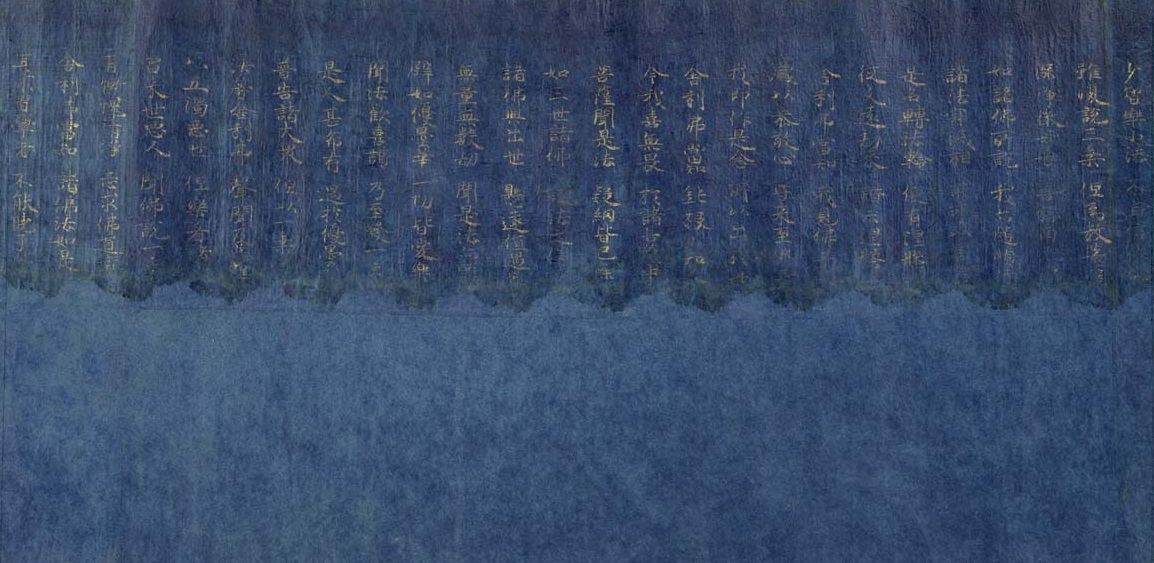 少智樂小法 不自信
雖復說三乘 但為教菩
深淨微妙
如諸佛所說 我亦隨順
諸法寂滅相 不
是名轉法輪 便有涅槃
從久遠劫來 讚示涅槃
舍利弗當知 我見佛
咸以恭敬心 皆來至
我即作是念 如來所以出
舍利弗當知 鈍根小
今我喜無畏 於諸菩薩中
菩薩聞是法 疑網皆已除
如三世諸佛 說法之儀
諸佛興出世 懸遠值遇
無量無數劫 聞是法
譬如優曇華 一切皆愛樂
聞法歡喜讚 乃至發一言
是人甚希有 過於優曇
普告諸大眾 但以一乘
汝等舍利弗 聲聞及菩
以五濁惡世 但樂著諸
當來世惡人 聞佛說一
有慚愧清淨 志求佛道者
舍利弗當知 諸佛法如是
其不習學者 不能曉了